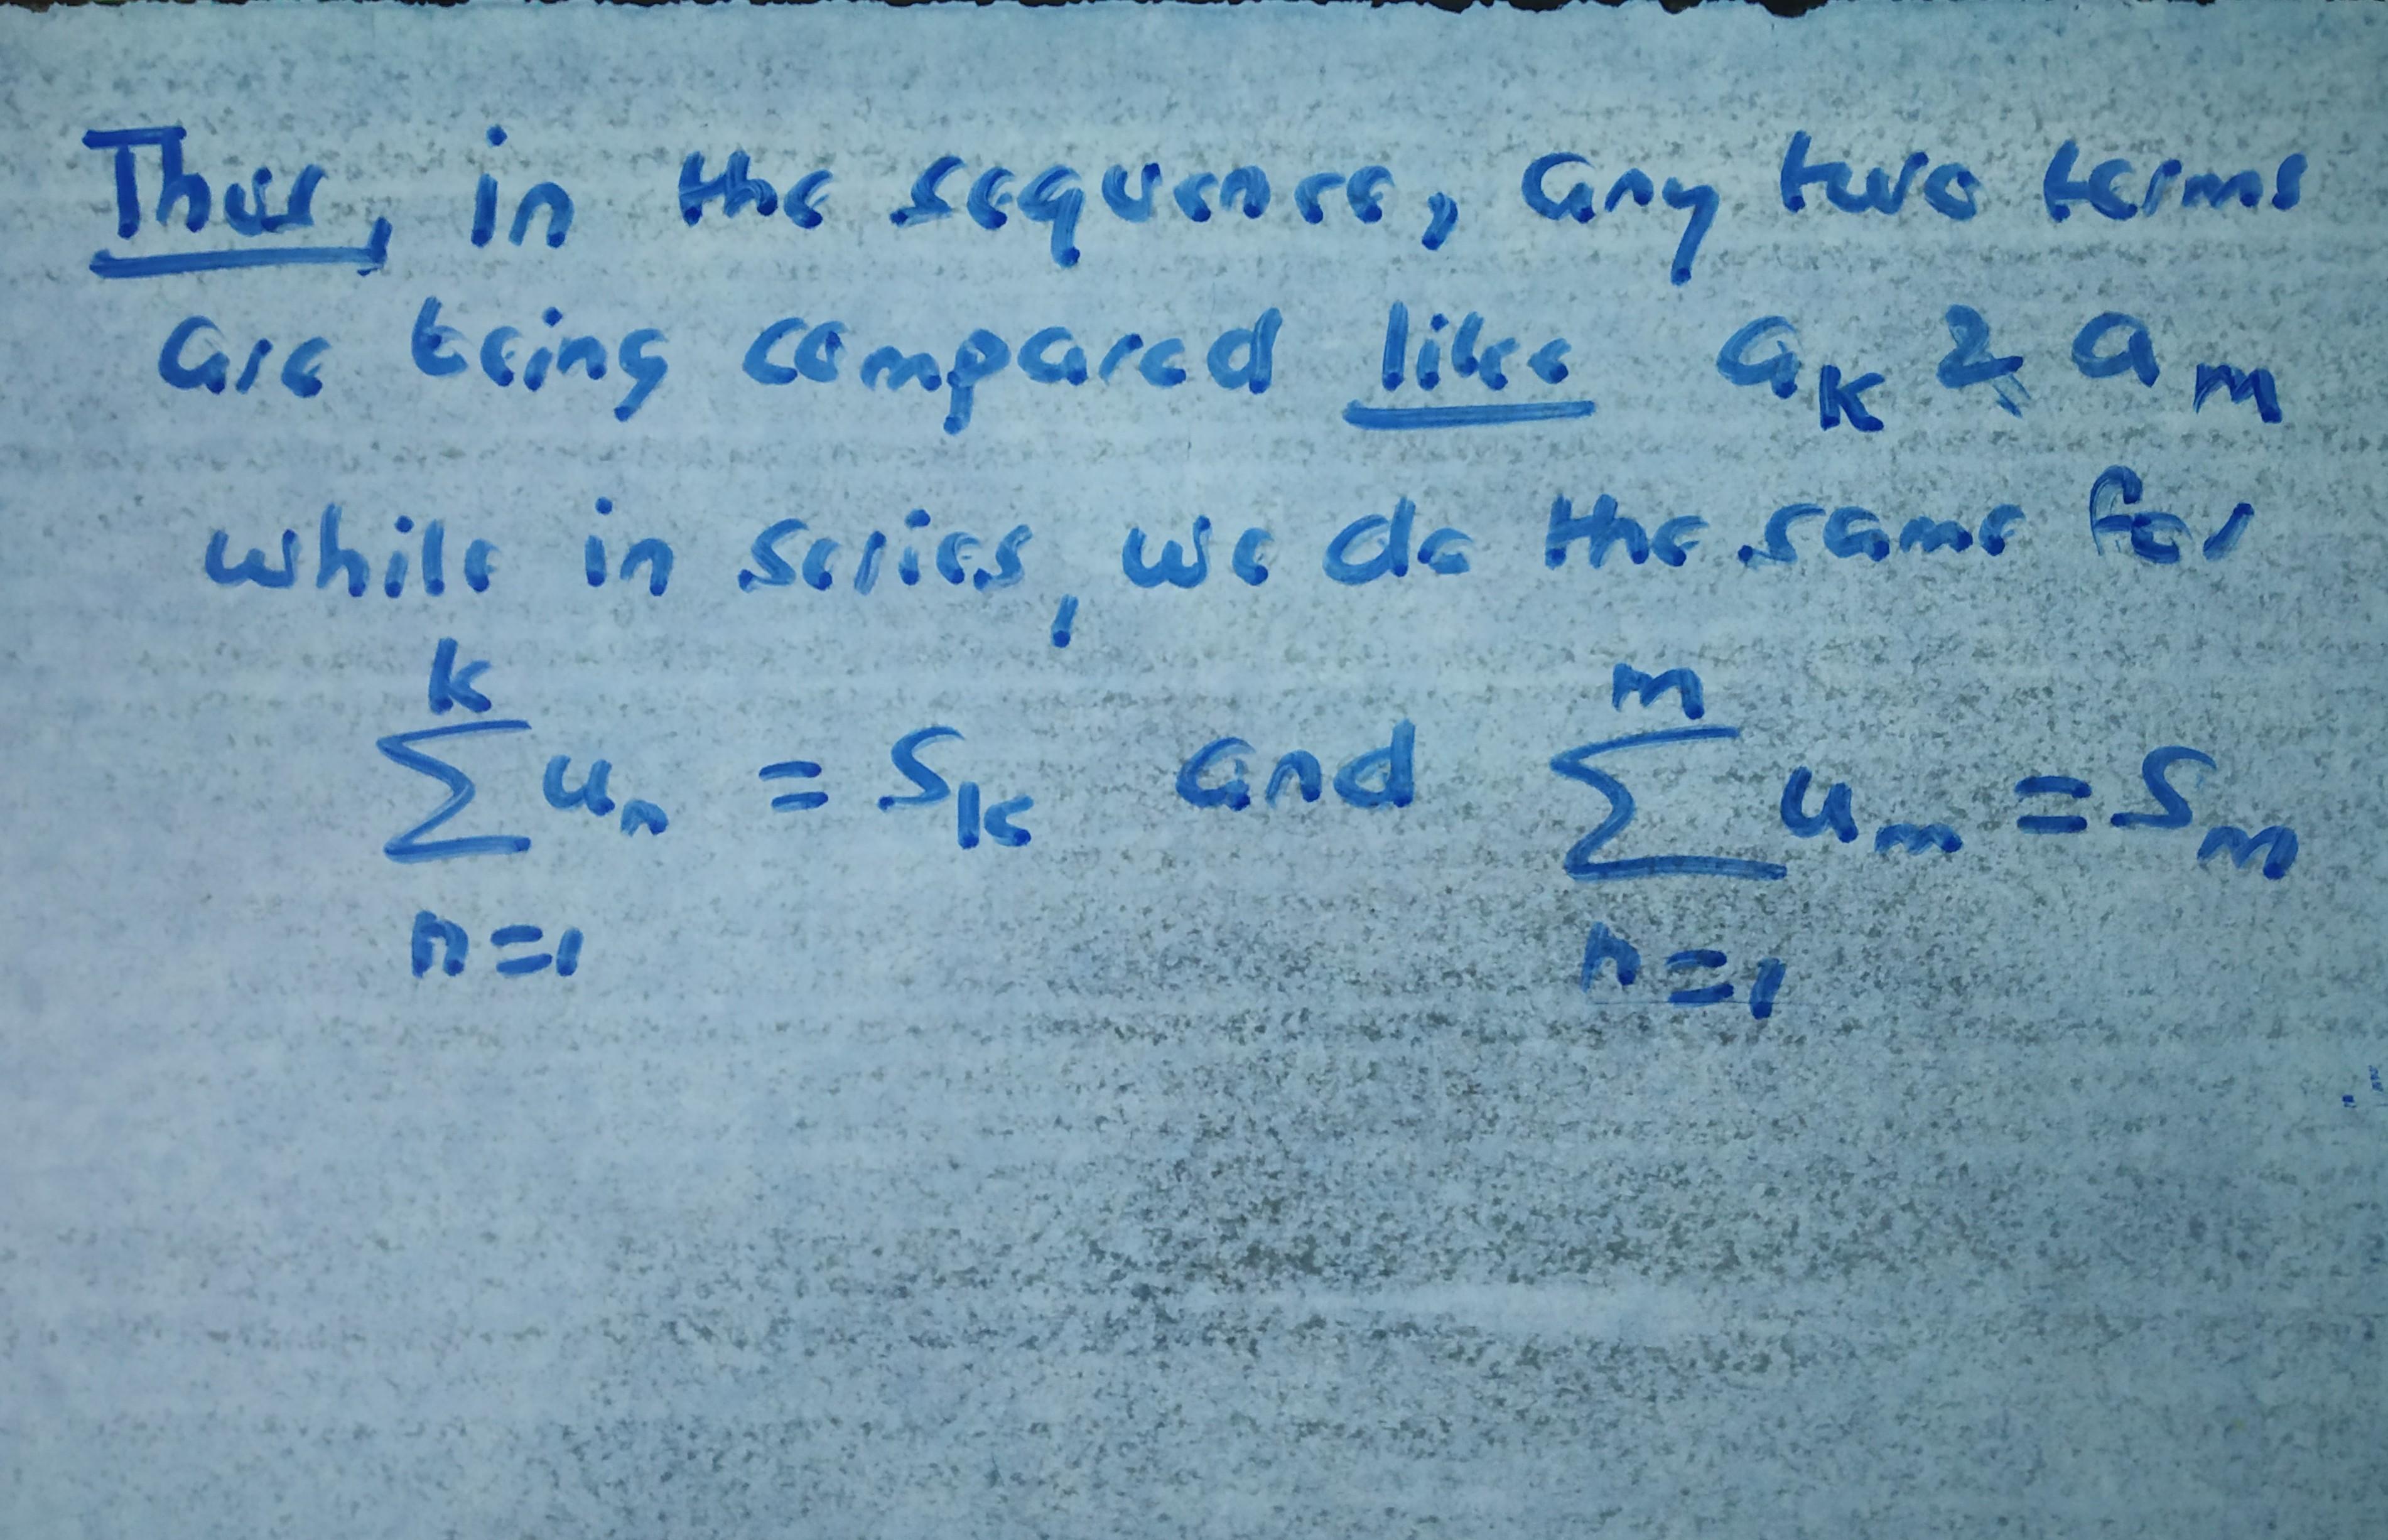 Thus, in the sequence, any two terms
are being compared like a_k & a_m
while in series, we do the same for
\sum_{n=1}^{k} u_n = S_k and \sum_{n=1}^{m} u_m = S_m